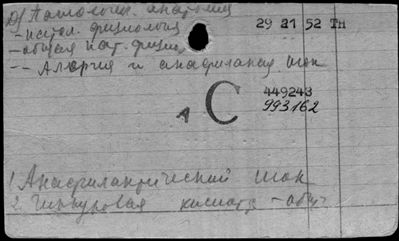 д) Патологич. анатомия
- патол. физиология
- общая пат. физиол
-- Аллергия и анафилакт шок
29 21 52 Тн
А С
449248
993162
1. Анафилактический шок
2. кислота - обуч